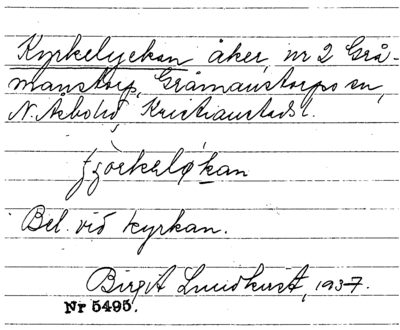 Kyrkelyckan åker, nr 2 Grå-
manstorp, Gråmanstorps sn,
N. Åsbo hd, Kristianstads l.
Bel. vid kyrkan.
Birgit Lundkvist, 1937.
Nr 5495.